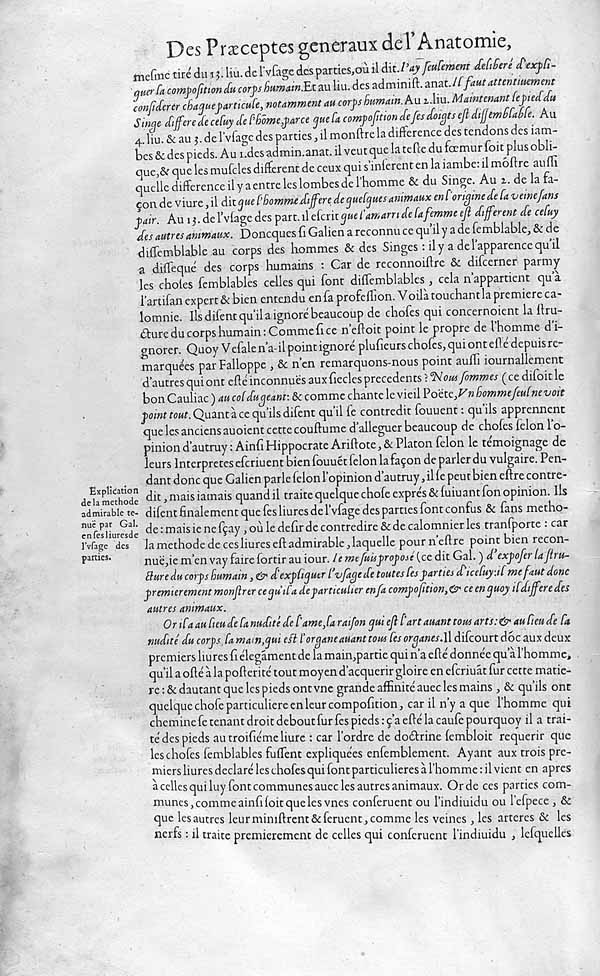 Des Præceptes generaux de l'Anatomie,
meſme tiré du 13. liu. de l'vſage des parties, où il dit. I'ay ſeulement deliberé d'expli-
quer la compoſition du corps humain. Et au liu. des adminiſt. anat. Il faut attentiuement
conſiderer chaque particule, notamment au corps humain. Au 2. liu. Maintenant le pied du
Singe differe de celuy de l'hõme, parce que la compoſition de ſes doigts eſt diſſemblable. Au
4. liu. & au 3. de l'vſage des parties, il monſtre la difference des tendons des iam-
bes & des pieds. Au 1. des admin. anat. il veut que la teſte du fœmur ſoit plus obli-
que, & que les muſcles different de ceux qui s'inſerent en la iambe: il mõſtre auſſi
quelle difference il y a entre les lombes de l'homme & du Singe. Au 2. de la fa-
çon de viure, il dit que l'homme differe de quelques animaux en l'origine de la veine ſans
pair. Au 13. de l'vſage des part. il eſcrit que l'amarri de la femme eſt different de celuy
des autres animaux. Doncques ſi Galien a reconnu ce qu'il y a de ſemblable, & de
diſſemblable au corps des hommes & des Singes: il y a de l'apparence qu'il
a diſſequé des corps humains : Car de reconnoiſtre & diſcerner parmy
les choſes ſemblables celles qui ſont diſſemblables, cela n'appartient qu'à
l'artiſan expert & bien entendu en ſa profeſſion. Voilà touchant la premiere ca-
lomnie. Ils diſent qu'il a ignoré beaucoup de choſes qui concernoient la ſtru-
cture du corps humain: Comme ſi ce n'eſtoit point le propre de l'homme d'i-
gnorer. Quoy Veſale n'a-il point ignoré pluſieurs choſes, qui ont eſté depuis re-
marquées par Falloppe, & n'en remarquons-nous point auſſi iournallement
d'autres qui ont eſté inconnuës aux ſiecles precedents? Nous ſommes (ce diſoit le
bon Cauliac) au col du geant: & comme chante le vieil Poëte, Vn homme ſeul ne voit
point tout. Quant à ce qu'ils diſent qu'il ſe contredit ſouuent: qu'ils apprennent
que les anciens auoient cette couſtume d'alleguer beaucoup de choſes ſelon l'o-
pinion d'autruy: Ainſi Hippocrate Ariſtote, & Platon ſelon le témoignage de
leurs Interpretes eſcriuent bien ſouuẽt ſelon la façon de parler du vulgaire. Pen-
dant donc que Galien parle ſelon l'opinion d'autruy, il ſe peut bien eſtre contre-
dit, mais iamais quand il traite quelque choſe exprés & ſuiuant ſon opinion. Ils
diſent finalement que ſes liures de l'vſage des parties ſont confus & ſans metho-
de: mais ie ne ſçay, où le deſir de contredire & de calomnier les tranſporte: car
la methode de ces liures eſt admirable, laquelle pour n'eſtre point bien recon-
nuë, ie m'en vay faire ſortir au iour. Ie me ſuis propoſé (ce dit Gal.) d'expoſer la ſtru-
cture du corps humain, & d'expliquer l'vſage de toutes les parties d'iceluy: il me faut donc
premierement monſtrer ce qu'il a de particulier en ſa compoſition, & ce en quoy il differe des
autres animaux.
Explication
de la methode
admirable te-
nuë par Gal.
en ſes liures de
l'vſage des
parties.
Or il a au lieu de la nudité de l'ame, la raiſon qui eſt l'art auant tous arts: & au lieu de la
nudité du corps la main, qui eſt l'organe auant tous les organes. Il diſcourt dõc aux deux
premiers liures ſi elegãment de la main, partie qui n'a eſté donnée qu'à l'homme,
qu'il a oſté à la poſterité tout moyen d'acquerir gloire en eſcriuãt ſur cette matie-
re: & dautant que les pieds ont vne grande affinité auec les mains, & qu'ils ont
quelque choſe particuliere en leur compoſition, car il n'y a que l'homme qui
chemine ſe tenant droit debout ſur ſes pieds: ç'a eſté la cauſe pourquoy il a trai-
té des pieds au troiſiéme liure: car l'ordre de doctrine ſembloit requerir que
les choſes ſemblables fuſſent expliquées enſemblement. Ayant aux trois pre-
miers liures declaré les choſes qui ſont particulieres à l'homme: il vient en apres
à celles qui luy ſont communes auec les autres animaux. Or de ces parties com-
munes, comme ainſi ſoit que les vnes conſeruent ou l'indiuidu ou l'eſpece, &
que les autres leur miniſtrent & ſeruent, comme les veines, les arteres & les
nerfs: il traite premierement de celles qui conſeruent l'indiuidu, leſquelles